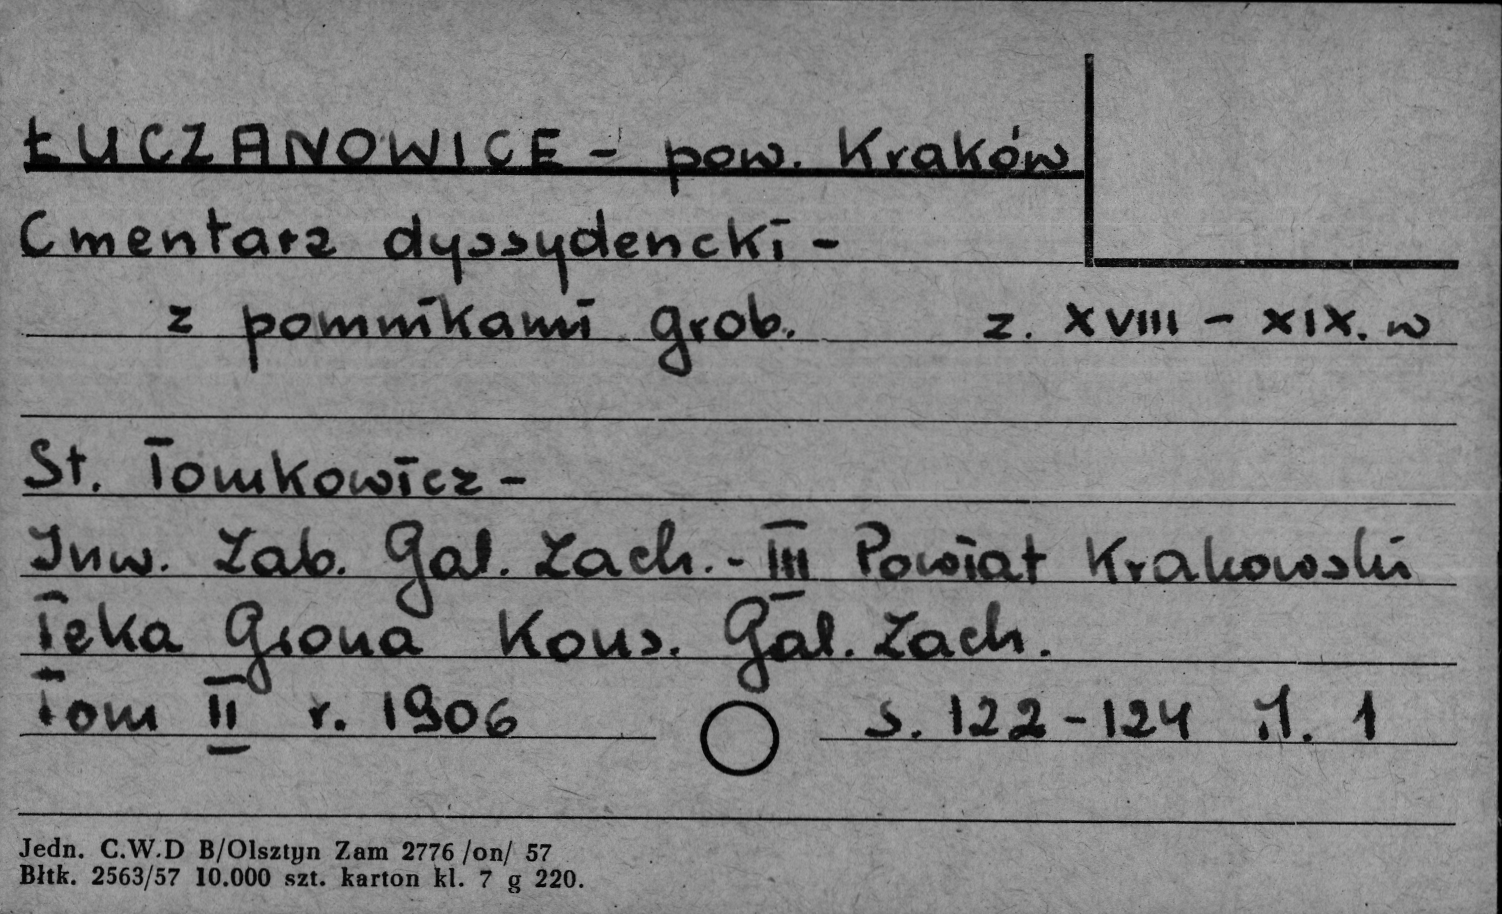 ŁUCZANOWICE - pow. Kraków
Cmentarz dyssydencki -
z pomnikami grob. z. XVIII - XIX. w
St. Tomkowicz -
Inw. Zab. Gal. Zach. - III Powiat Krakowski
Teka Grona Kons. Gal. Zach.
Tom II r. 1906 s. 122-124 il. 1
Jedn. C.W.D B/Olsztyn Zam 2776 /on/ 57
Błtk. 2563/57 10.000 szt. karton kl. 7 g 220.